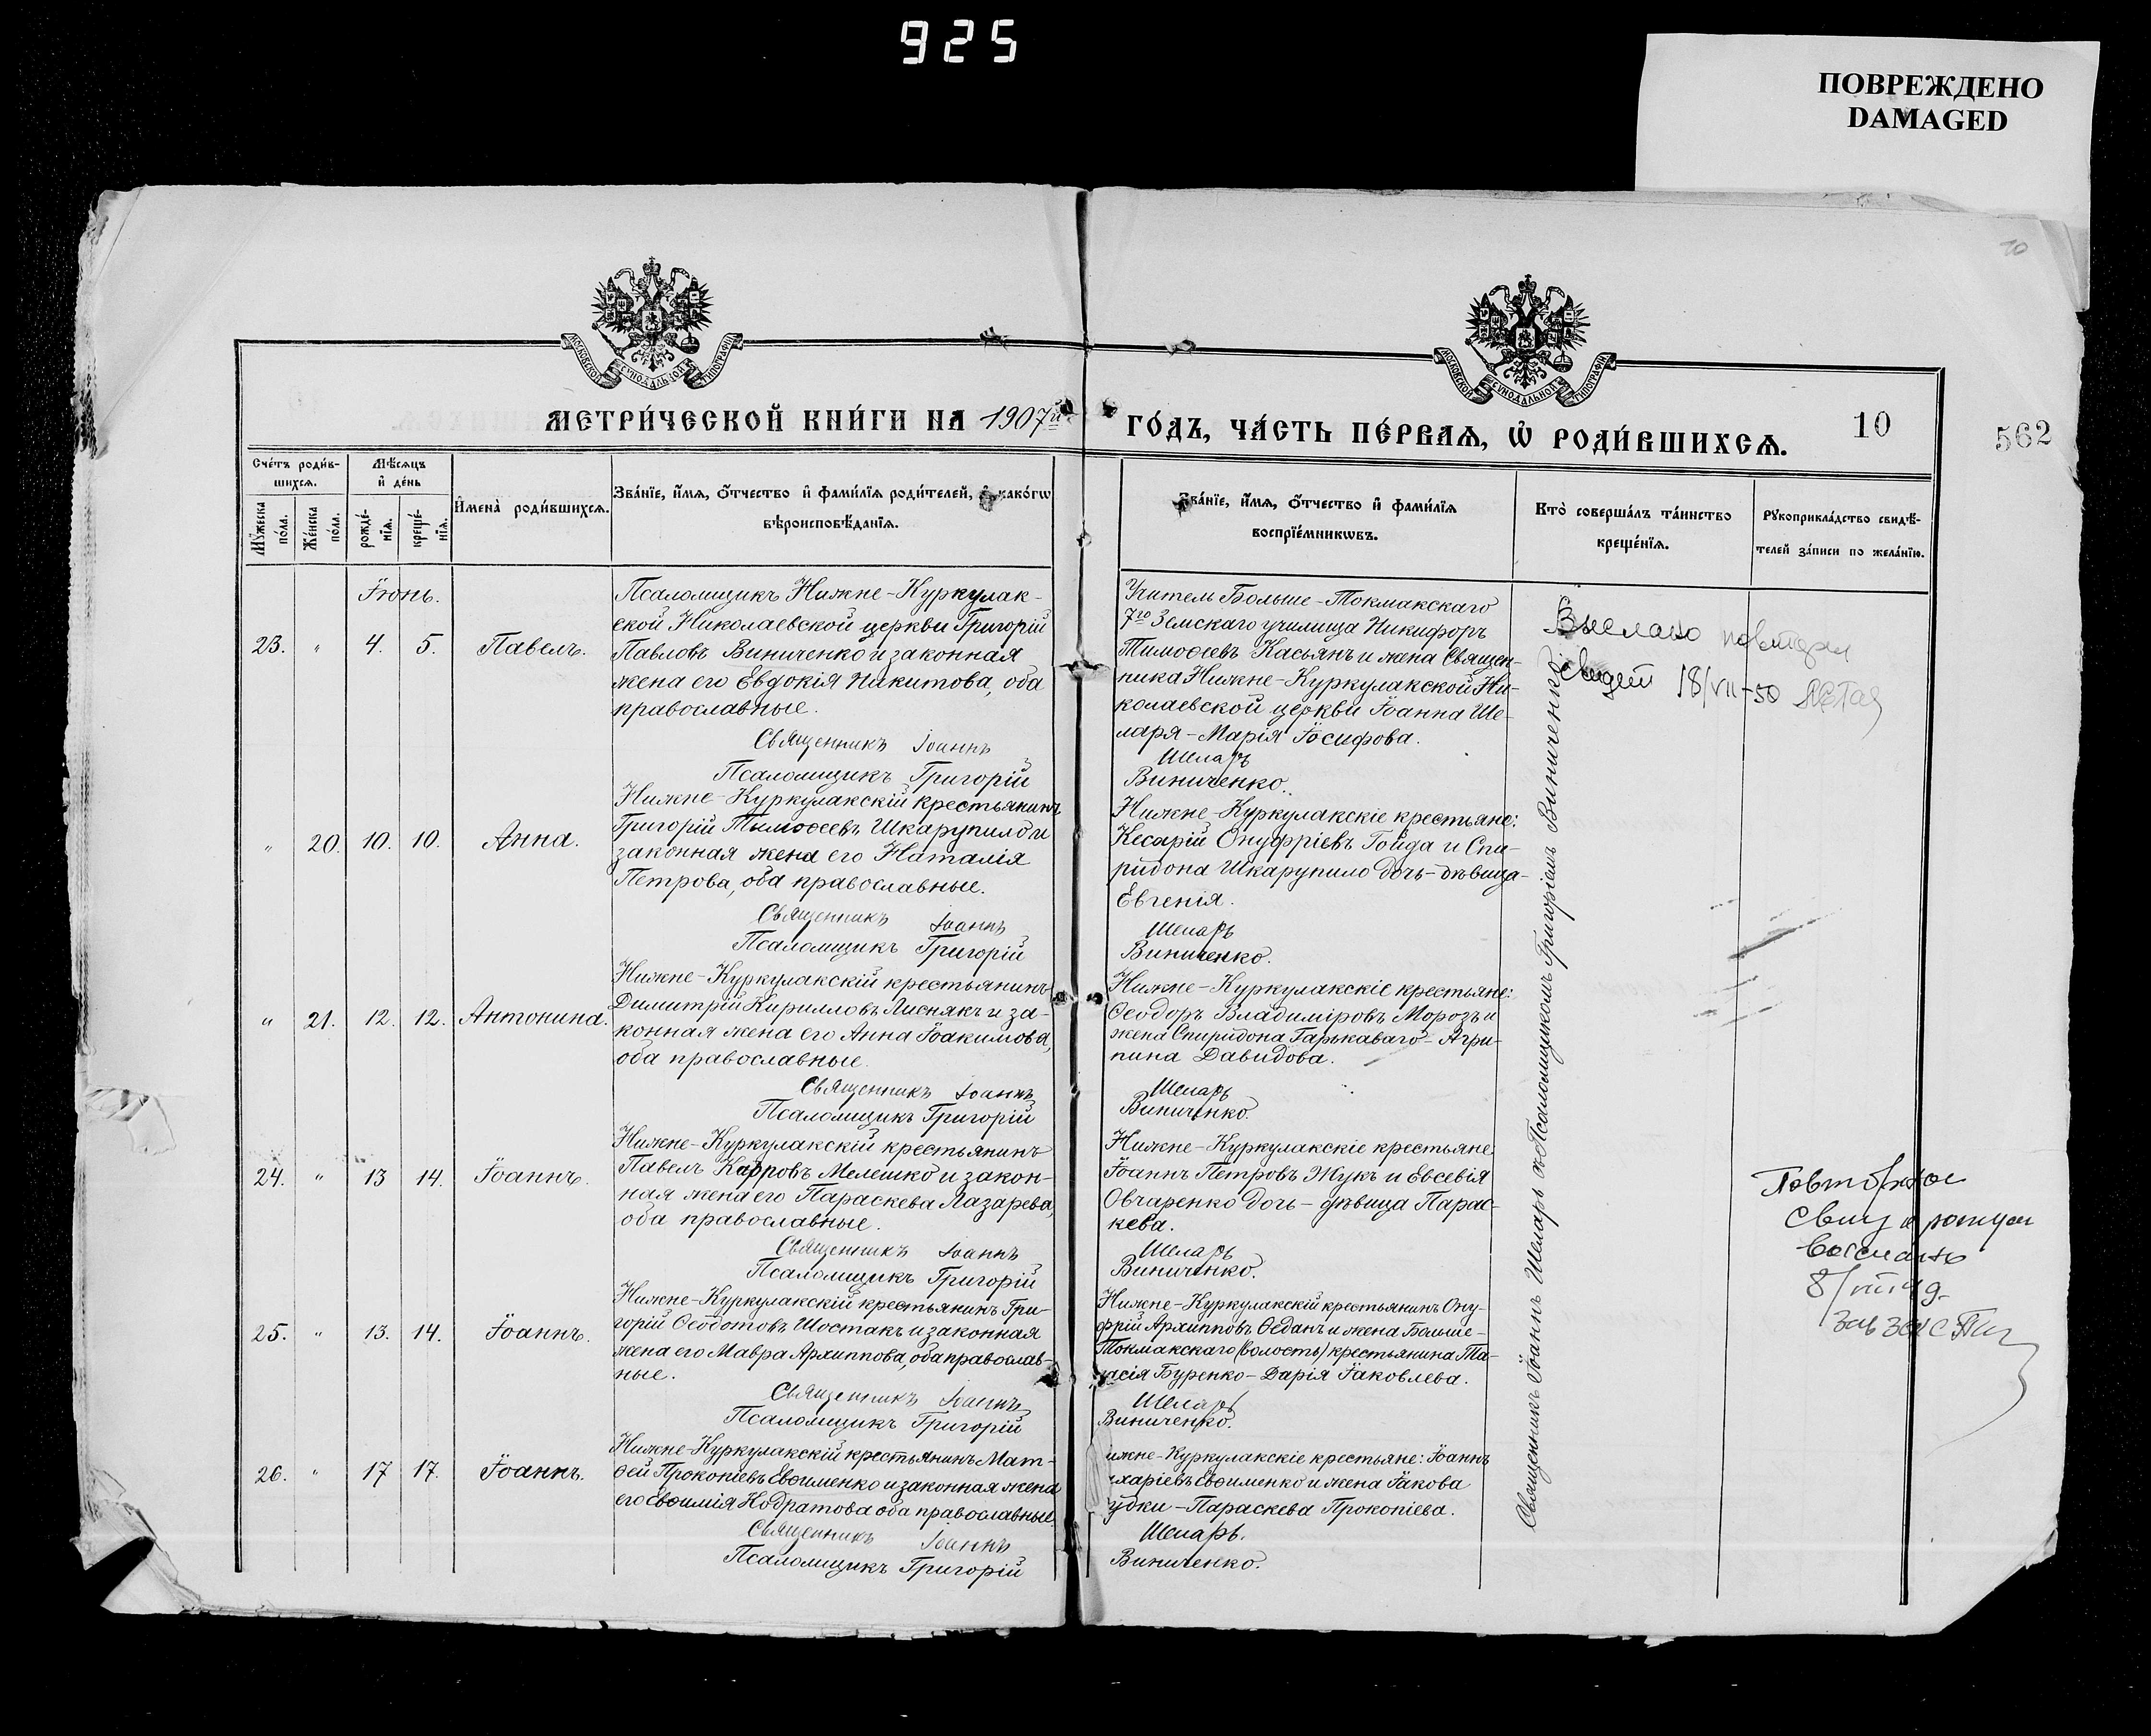 925
ПОВРЕЖДЕНО
DAMAGED
10
МОСКОВСКОЙ СѴНОДАЛЬНОЙ ТИПОГРАФІИ
МОСКОВСКОЙ СѴНОДАЛЬНОЙ ТИПОГРАФІИ
МЕТРИ́ЧЕСКОЙ КНИ́ГИ НА 1907й
ГО́ДЪ, ЧА́СТЬ ПЕ́РВАѦ, Ѡ҆ РОДИ́ВШИХСѦ.
10
562
Сче́тъ роди́в-
шихсѧ.
Мѣ́сѧцъ
и҆ де́нь
Мꙋ́жеска
по́ла.
Же́нска
по́ла.
рожде́-
нїѧ.
креще́-
нїѧ.
И҆мена̀ роди́вшихсѧ.
Зва́нїе, и҆́мѧ, ѻ҆́тчество и҆ фами́лїѧ роди́телей, и҆ како́гѡ
вѣроисповѣ́данїѧ.
Зва́нїе, и҆́мѧ, ѻ҆́тчество и҆ фами́лїѧ
воспрїе́мникѡвъ.
Кто̀ соверша́лъ та́инство
креще́нїѧ.
Рꙋкоприкла́дство свидѣ́-
телей за́писи по жела́нїю.
Іюнь.
23. " 4. 5. Павелъ.
Псаломщикъ Нижне-Куркулак-
ской Николаевской церкви Григорій
Павловъ Виниченко и законная
жена его Евдокія Никитова, оба
православные.
Священникъ Іоаннъ
Псаломщикъ Григорій
Учитель Больше-Токмакскаго
7го Земскаго училища Никифоръ
Тимоѳеевъ Касьянъ и жена Священ-
ника Нижне-Куркулакской Ни-
колаевской церкви Іоанна Ше-
ларя-Марія Іосифова.
Шеларь
Виниченко.
Выслано повторн
свидет 18/VII-50
" 20. 10. 10. Анна.
Нижне-Куркулакскій крестьянинъ
Григорій Тымоѳеевъ Шкарупило и
законная жена его Наталія
Петрова, оба православные.
Священникъ Іоаннъ
Псаломщикъ Григорій
Нижне-Куркулакскіе крестьяне:
Кесарій Онуфріевъ Гойда и Спи-
ридона Шкарупило дочь-дѣвица-
Евгенія.
Шеларь
Виниченко.
" 21. 12. 12. Антонина.
Нижне-Куркулакскій крестьянинъ
Димитрій Кирилловъ Лиснякъ и за-
конная жена его Анна Іоакимова,
оба православные.
Священникъ Іоаннъ
Псаломщикъ Григорій
Нижне-Куркулакскіе крестьяне:
Ѳеодоръ Владиміровъ Морозъ и
жена Спиридона Гарькаваго-Агри-
пина Давидова.
Шеларь
Виниченко.
24. " 13 14. Іоаннъ.
Нижне-Куркулакскій крестьянинъ
Павелъ Карповъ Мелешко и закон-
ная жена его Параскева Лазарева,
оба православные.
Священникъ Іоаннъ
Псаломщикъ Григорій
Нижне-Куркулакскіе крестьяне
Іоаннъ Петровъ Жукъ и Евсевія
Овчаренко дочь-дѣвица Парас-
кева.
Шеларь
Виниченко.
Повторное
свид о рожден
выслано
25. " 13. 14. Іоаннъ.
Нижне-Куркулакскій крестьянинъ Гри-
горій Ѳеодотовъ Шостакъ и законная
жена его Мавра Архиппова, оба православ-
ные.
Священникъ Іоаннъ
Псаломщикъ Григорій
Нижне-Куркулакскій крестьянинъ Ону-
фрій Архипповъ Ѳеданъ и жена Больше-
Токмакскаго (волость) крестьянина Та-
расія Буренко-Дарія Іаковлева.
Шеларь
Виниченко.
26. " 17 17. Іоаннъ.
Нижне-Куркулакскій крестьянинъ Мат-
ѳей Прокопіевъ Евѳименко и законная жена
его Евѳимія Кодратова оба православные.
Священникъ Іоаннъ
Псаломщикъ Григорій
ижне-Куркулакскіе крестьяне: Іоаннъ
харіевъ Евѳименко и жена Іакова
удки-Параскева Прокопіева.
Шеларь.
Виниченко.
Священникъ Іоаннъ Шеларь съ Псаломщикомъ Григоріемъ Виниченко